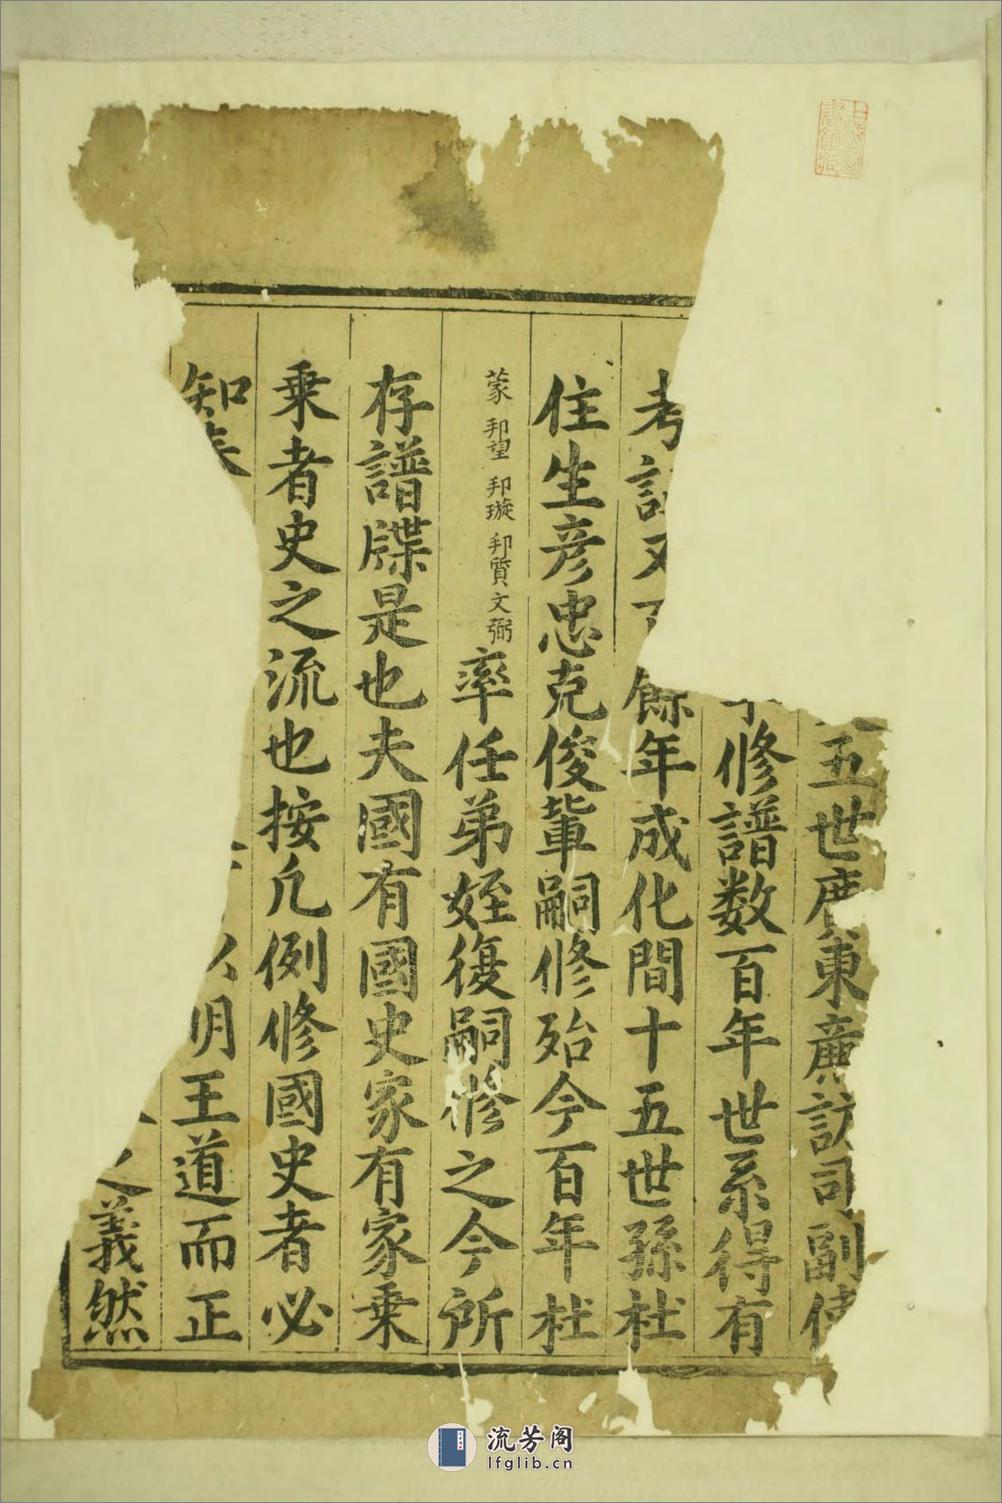 五世廣東廉訪司副使
修譜数百年世系得有
考訂又百餘年成化間十五世孫杜
住生彦忠克俊軰嗣修殆今百年杜
蒙 邦望 邦璇 邦質 文弼 率任弟姪復嗣修之今所
存譜牒是也夫國有國史家有家乗
乗者史之流也按凡例修國史者必
知 以明王道而正
義然
流芳阁
lfglib.cn